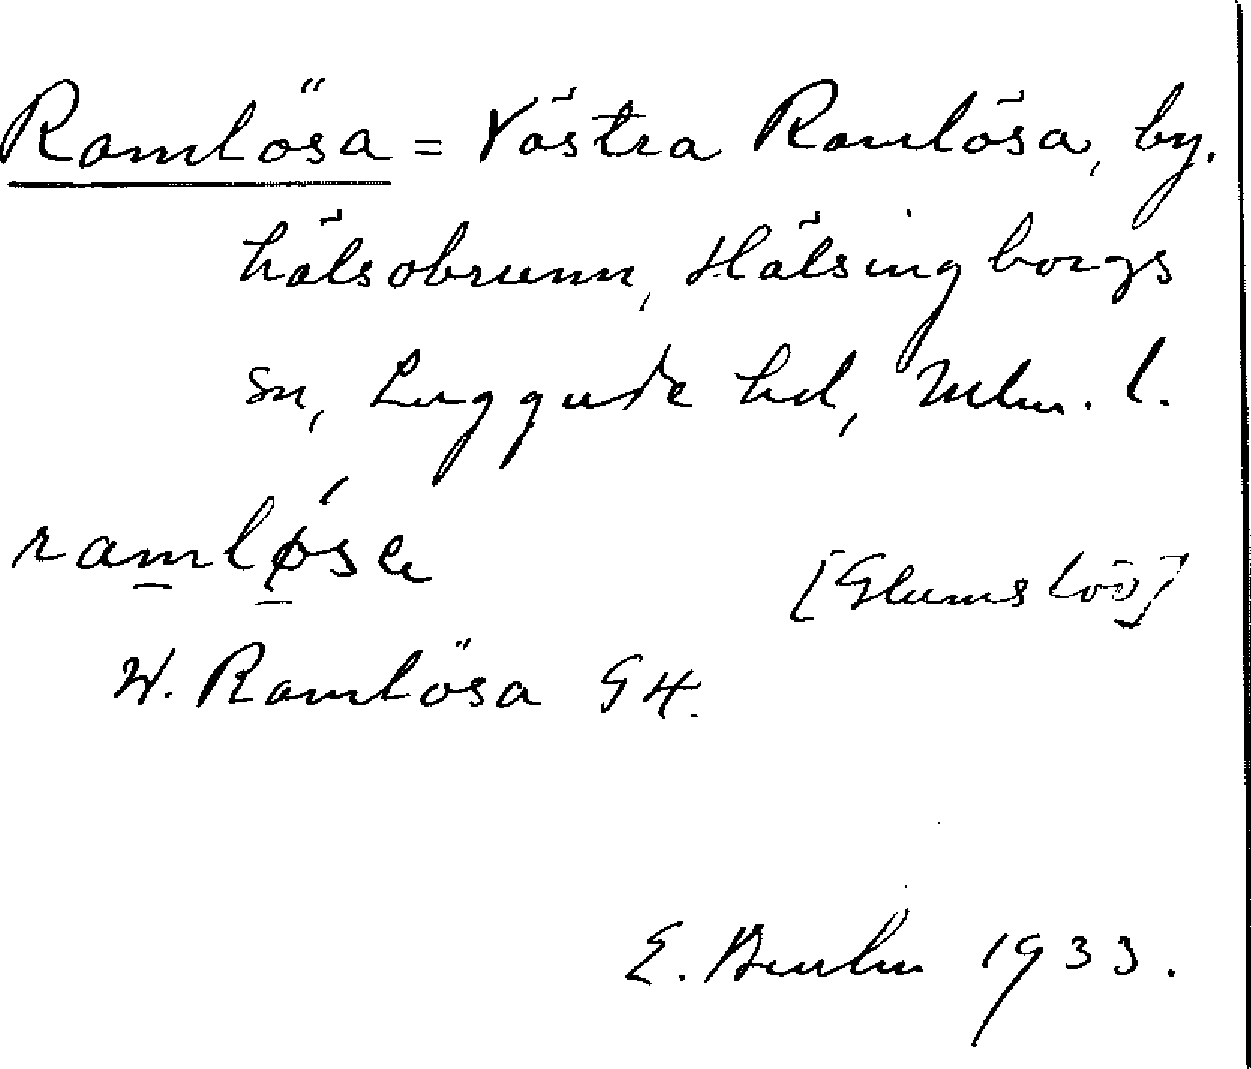 Ramlösa = Västra Ramlösa, by.
hälsobrunn, Hälsingborgs
sn, Luggude hd, Mlm. l.
ramløsa
[Glumslöv]
W. Ramlösa GK.
E. 1933.